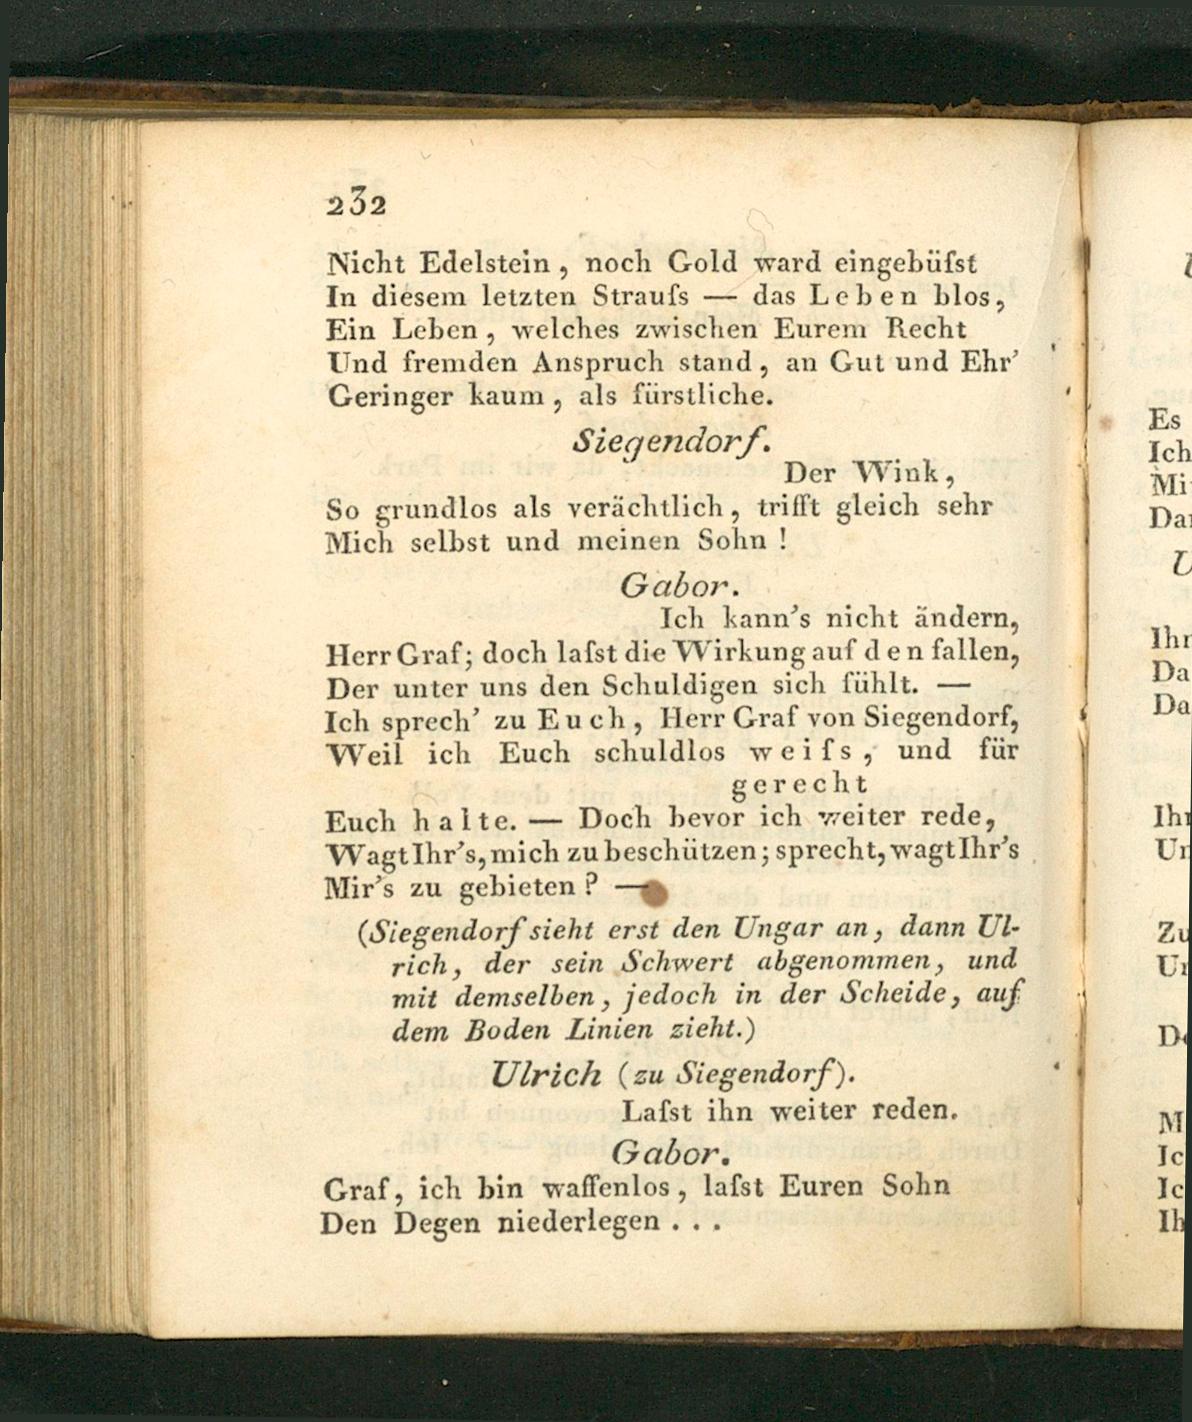 232
Nicht Edelstein, noch Gold ward eingebüſst
In diesem letzten Strauſs — das Leben blos,
Ein Leben, welches zwischen Eurem Recht
Und fremden Anspruch stand, an Gut und Ehr'
Geringer kaum, als fürstliche.
Siegendorf.
Der Wink,
So grundlos als verächtlich, trifft gleich sehr
Mich selbst und meinen Sohn!
Gabor.
Ich kann's nicht ändern,
Herr Graf; doch laſst die Wirkung auf den fallen,
Der unter uns den Schuldigen sich fühlt. —
Ich sprech' zu Euch, Herr Graf von Siegendorf,
Weil ich Euch schuldlos weiſs, und für
gerecht
Euch halte. — Doch bevor ich weiter rede,
Wagt Ihr's, mich zu beschützen; sprecht, wagt Ihr's
Mir's zu gebieten? —
(Siegendorf sieht erst den Ungar an, dann Ul-
rich, der sein Schwert abgenommen, und
mit demselben, jedoch in der Scheide, auf
dem Boden Linien zieht.)
Ulrich (zu Siegendorf).
Laſst ihn weiter reden.
Gabor.
Graf, ich bin waffenlos, laſst Euren Sohn
Den Degen niederlegen...
Es
Ich